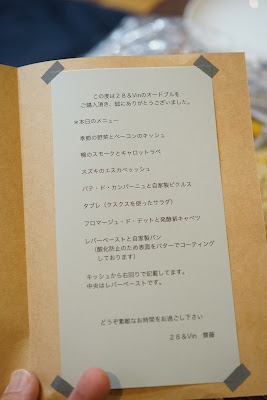 この度は２８＆Vinのオードブルを
ご購入頂き、誠にありがとうございました。
＊本日のメニュー
季節の野菜とベーコンのキッシュ
鴨のスモークとキャロットラペ
スズキのエスカベッシュ
パテ・ド・カンパーニュと自家製ピクルス
タブレ（クスクスを使ったサラダ）
フロマージュ・ド・テットと発酵紫キャベツ
レバーペーストと自家製パン
（酸化防止のため表面をバターでコーティング
しております）
キッシュから右回りで記載してます。
中央はレバーペーストです。
どうぞ素敵なお時間をお過ごし下さい
２８＆Vin　齋藤